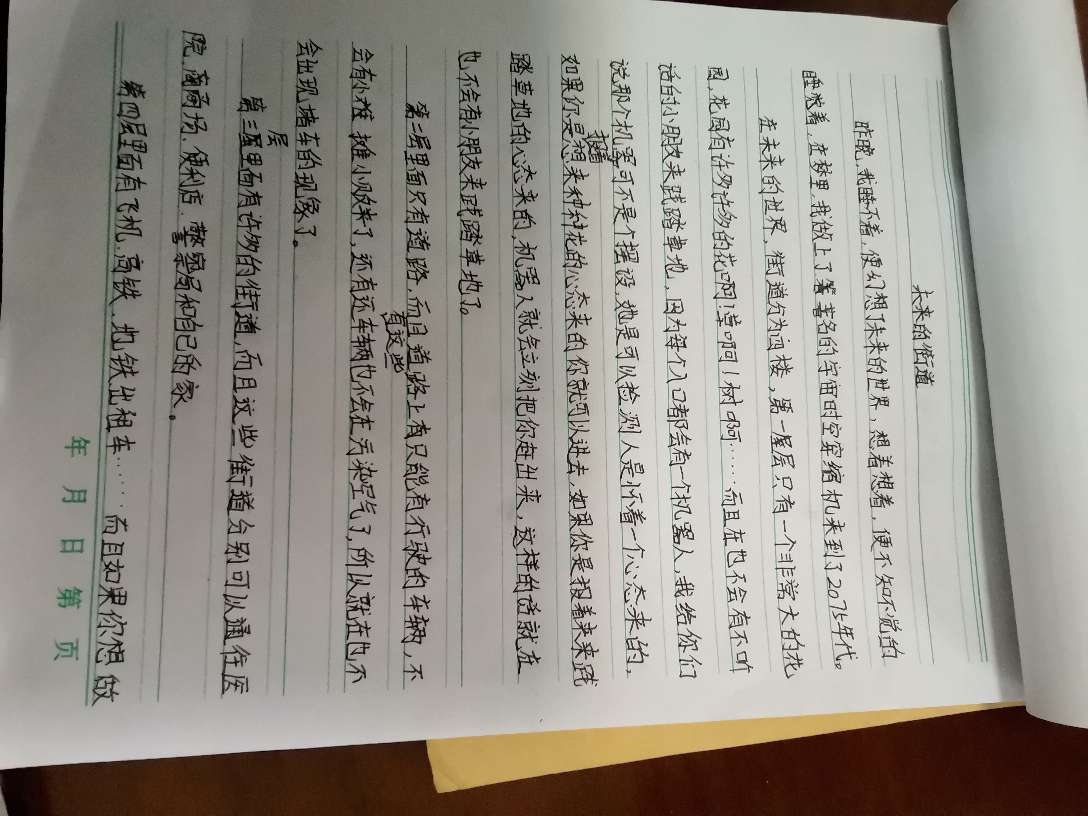 未来的街道
昨晚，我睡不着，便幻想了未来的世界，想着想着，便不知不觉的
睡着，在梦里我做上了著名的宇宙时空穿缩机来到了2075年代。
在未来的世界，街道分为四楼，第一层只有一个非常大的花
园，花园有许多许多的花啊！草啊！树啊……而且在也不会有不听
话的小朋友来践踏草地，因为每个入口都会有一个机器人，我给你们
说那个机器可不是个摆设，她是可以检测人是怀着一个心态来的，
如果你是抱着想来种花的心态来的你就可以进去，如果你是报着来来践
踏草地的心态来的，机器人就会立刻把你赶出来，这样的话就在
也不会有小朋友来践踏草地了。
第二层里面只有道路，而且道路上有只能有行驶的车辆，不
会有小摊摊小贩来了，还有还有这些车辆也不会在污染空气了，所以就在也不
会出现堵车的现象了。
第三层里面有许多的街道，而且这些街道分别可以通往医
院、商场、便利店、警察局和自己的家。
第四层里面有飞机、高铁、地铁出租车……而且如果你想做
年 月 日 第 页